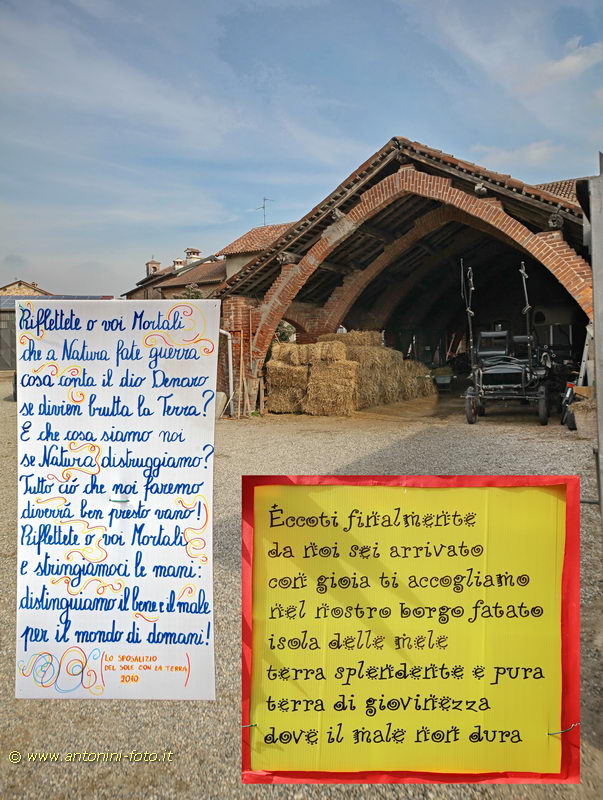 Riflettete o voi Mortali
che a Natura fate guerra
cosa conta il dio Denaro
se divien brutta la Terra?
E che cosa siamo noi
se Natura distruggiamo?
Tutto ció che noi faremo
diverrà ben presto vano!
Riflettete o voi Mortali
e stringiamoci le mani:
distinguiamo il bene e il male
per il mondo di domani!
(LO SPOSALIZIO
DEL SOLE CON LA TERRA)
2010
Èccoti finalmente
da noi sei arrivato
con gioia ti accogliamo
nel nostro borgo fatato
isola delle mele
terra splendente e pura
terra di giovinezza
dove il male non dura
© www.antonini-foto.it